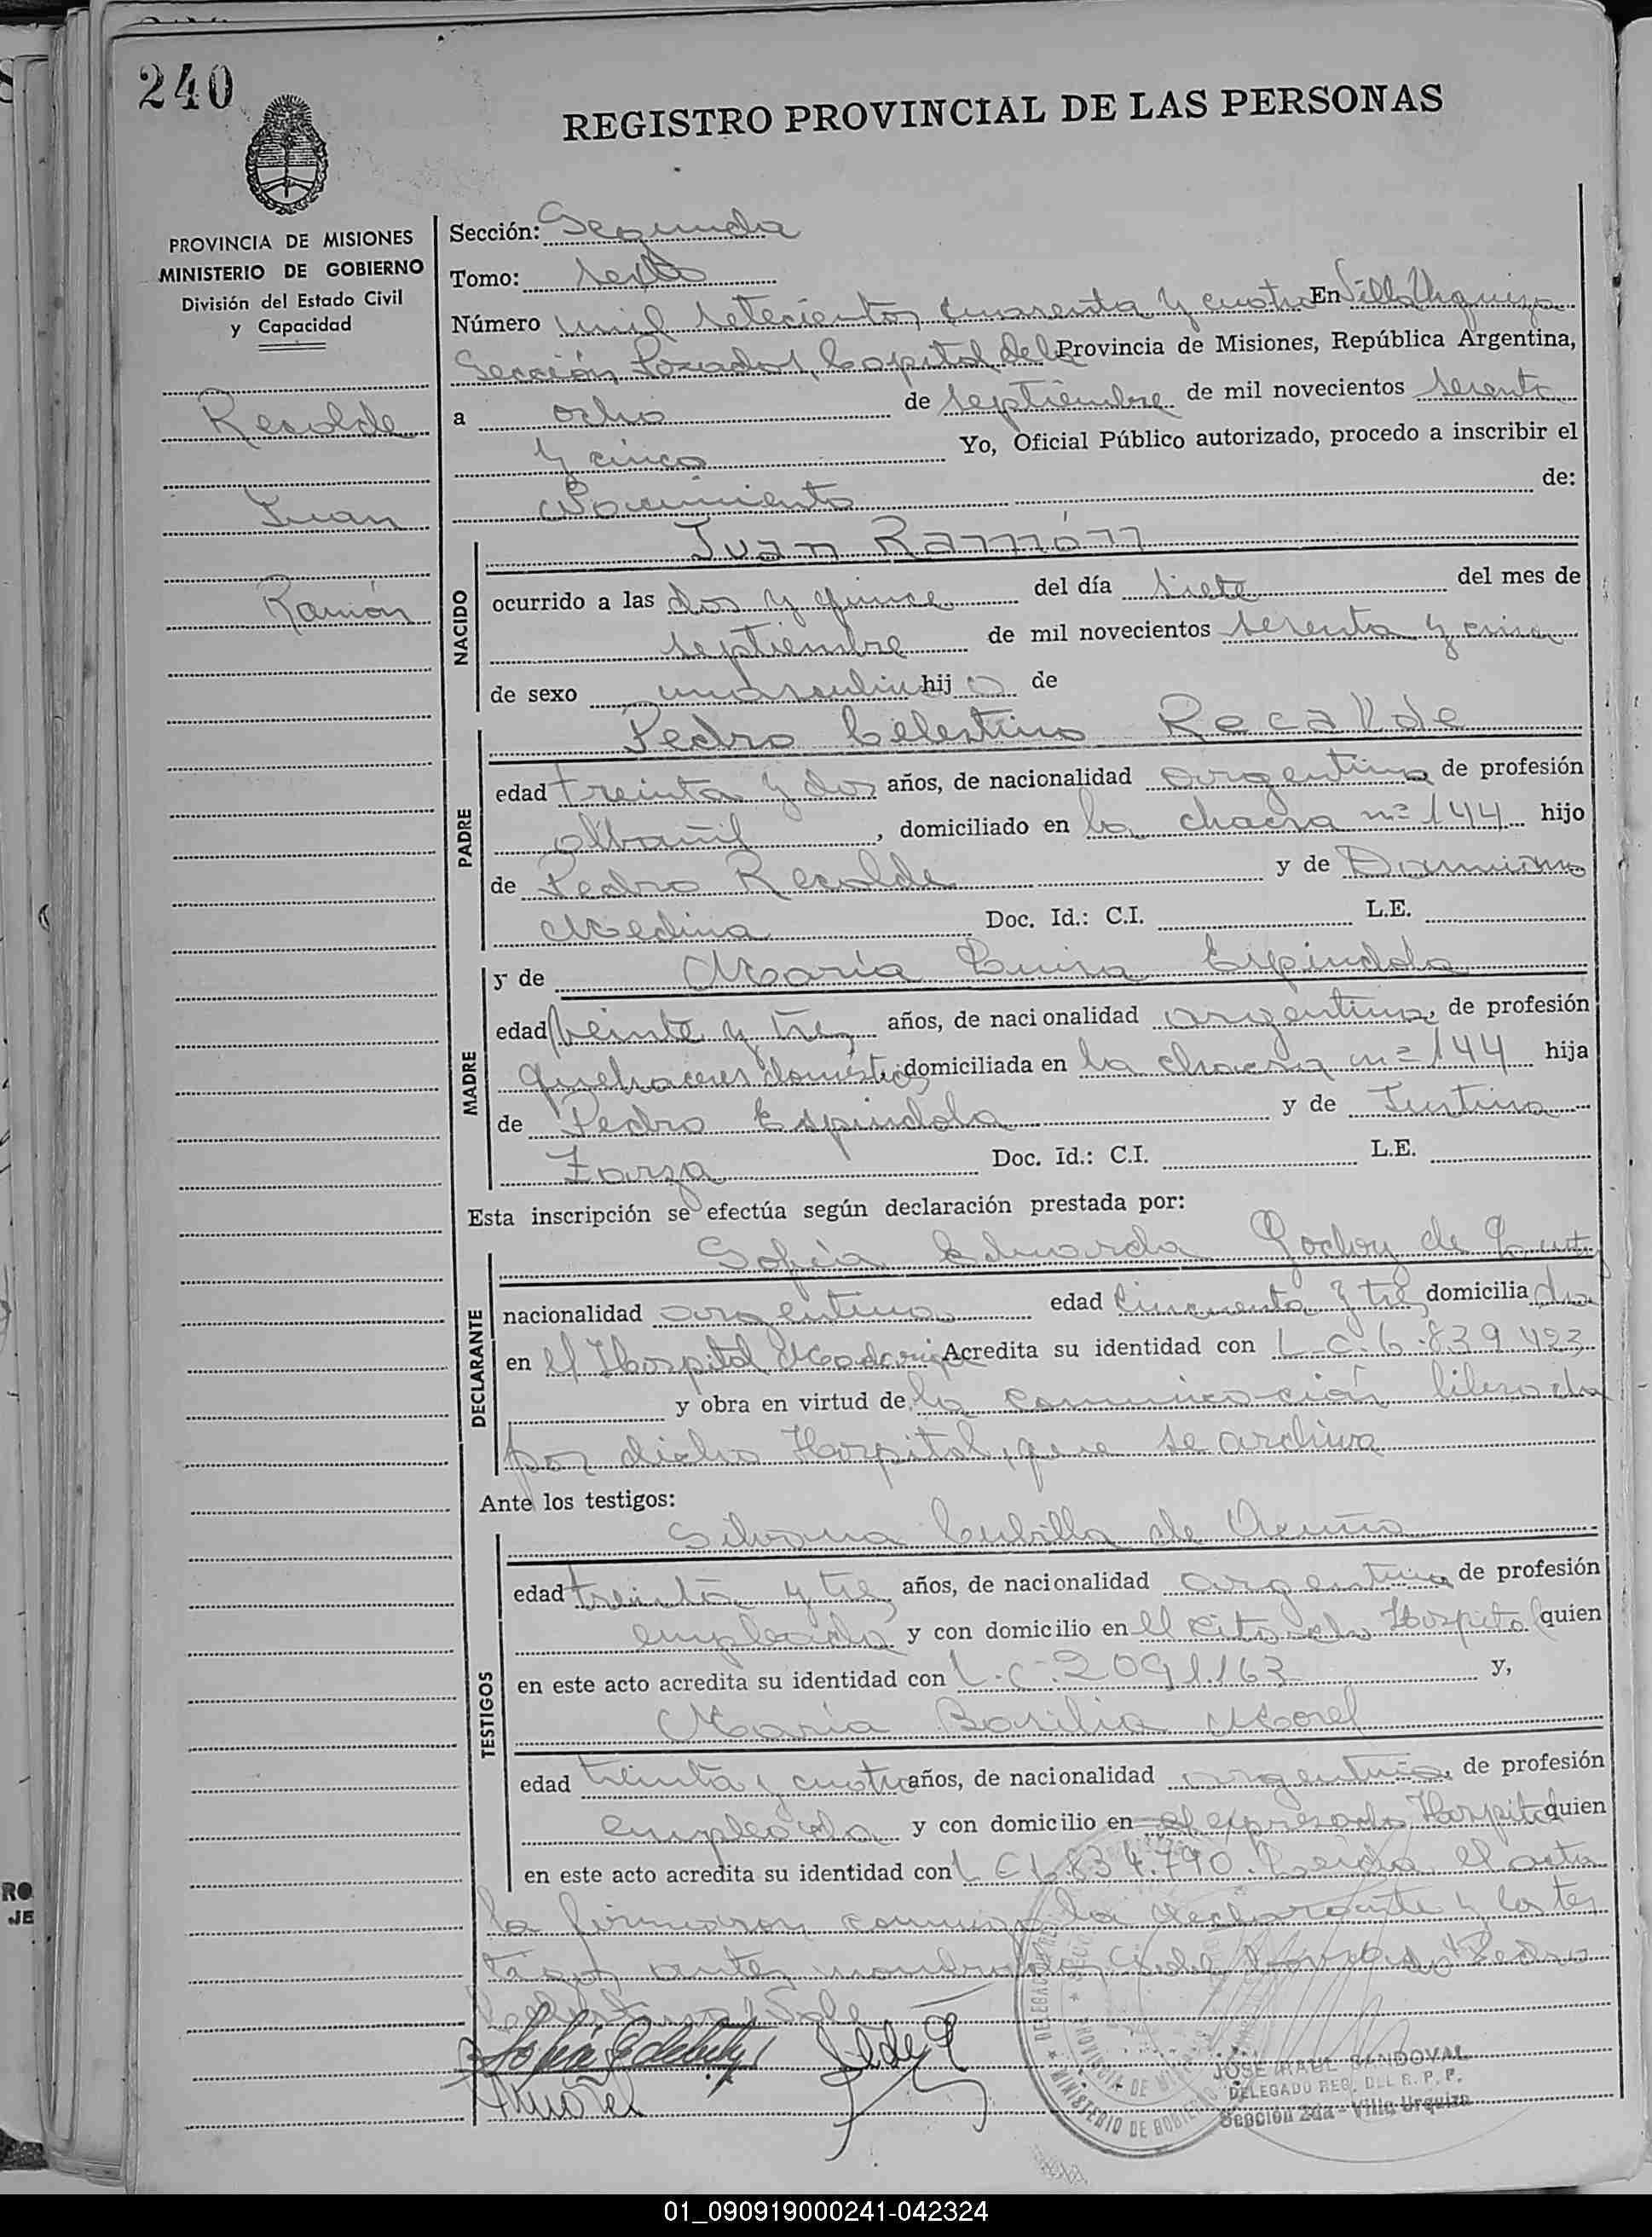 240
REGISTRO PROVINCIAL DE LAS PERSONAS
PROVINCIA DE MISIONES
MINISTERIO DE GOBIERNO
División del Estado Civil
y Capacidad
Recalde
Juan
Ramón
Sección: Segunda
Tomo: sexto
Número mil setecientos cuarenta y cuatro En Villa Urquiza
Sección Posadas, Capital de la Provincia de Misiones, República Argentina,
a ocho de septiembre de mil novecientos sesenta
y cinco Yo, Oficial Público autorizado, procedo a inscribir el
Nacimiento de:
Juan Ramón
NACIDO
ocurrido a las dos y quince del día siete del mes de
septiembre de mil novecientos sesenta y cinco
de sexo masculino hijo de
Pedro Celestino Recalde
PADRE
edad treinta y dos años, de nacionalidad argentina de profesión
albañil, domiciliado en la chacra nº 144 hijo
de Pedro Recalde y de Damiana
Medina Doc. Id.: C.I. L.E.
MADRE
y de María Luisa Espindola
edad veinte y tres años, de nacionalidad argentina, de profesión
quehaceres domésticos domiciliada en la chacra nº 144 hija
de Pedro Espindola y de Justina
Zarza Doc. Id.: C.I. L.E.
Esta inscripción se efectúa según declaración prestada por:
Sofía Eduarda Godoy de
DECLARANTE
nacionalidad argentina edad cincuenta y tres domiciliada
en el Hospital Madariaga Acredita su identidad con L.C. 6.839.423
y obra en virtud de la comunicación librada
por dicho Hospital, que se archiva
Ante los testigos:
Silvana Cubilla de Acuña
TESTIGOS
edad treinta y tres años, de nacionalidad argentina de profesión
empleada y con domicilio en el citado Hospital quien
en este acto acredita su identidad con L.C. 2091.163 y,
María Basilia Morel
edad treinta y cuatro años, de nacionalidad argentina, de profesión
empleada y con domicilio en el expresado Hospital quien
en este acto acredita su identidad con L.C. 6.834.790. Leida el acta
la firmaron conmigo la declarante y los tes
tigos antes nombrados Pedro
JOSE RAUL SANDOVAL
DELEGADO REG. DEL R. P. P.
Sección 2da - Villa Urquiza
MINISTERIO DE GOBIERNO
PROVINCIA DE MISIONES
RO
JE
01_090919000241-042324